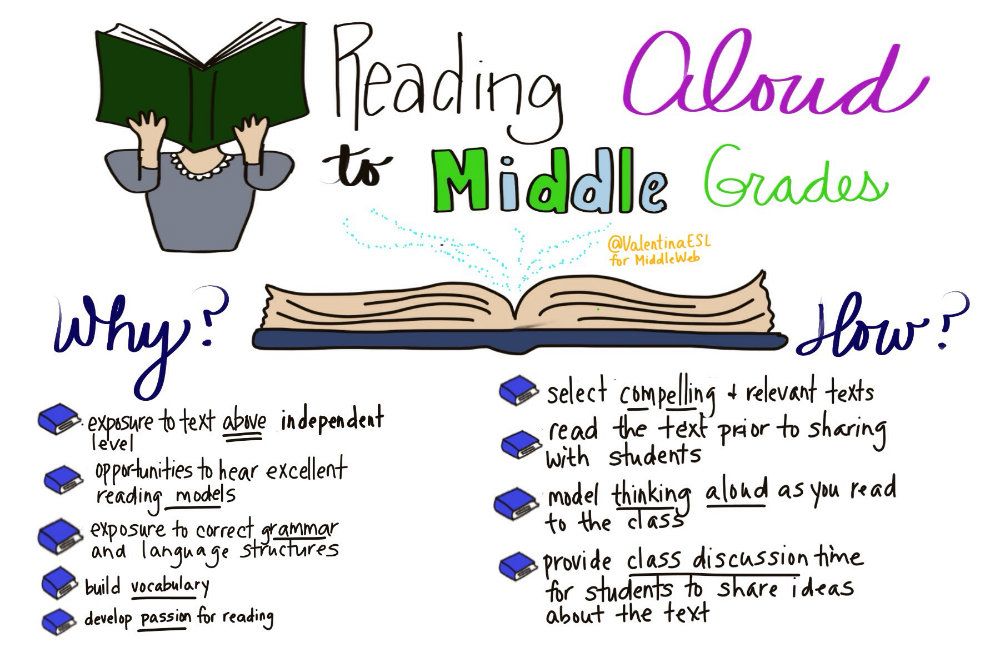 Reading Aloud
to Middle Grades
@ValentinaESL
for MiddleWeb
Why?
exposure to text above independent
level
opportunities to hear excellent
reading models
exposure to correct grammar
and language structures
build vocabulary
develop passion for reading
How?
select compelling + relevant texts
read the text prior to sharing
with students
model thinking aloud as you read
to the class
provide class discussion time
for students to share ideas
about the text